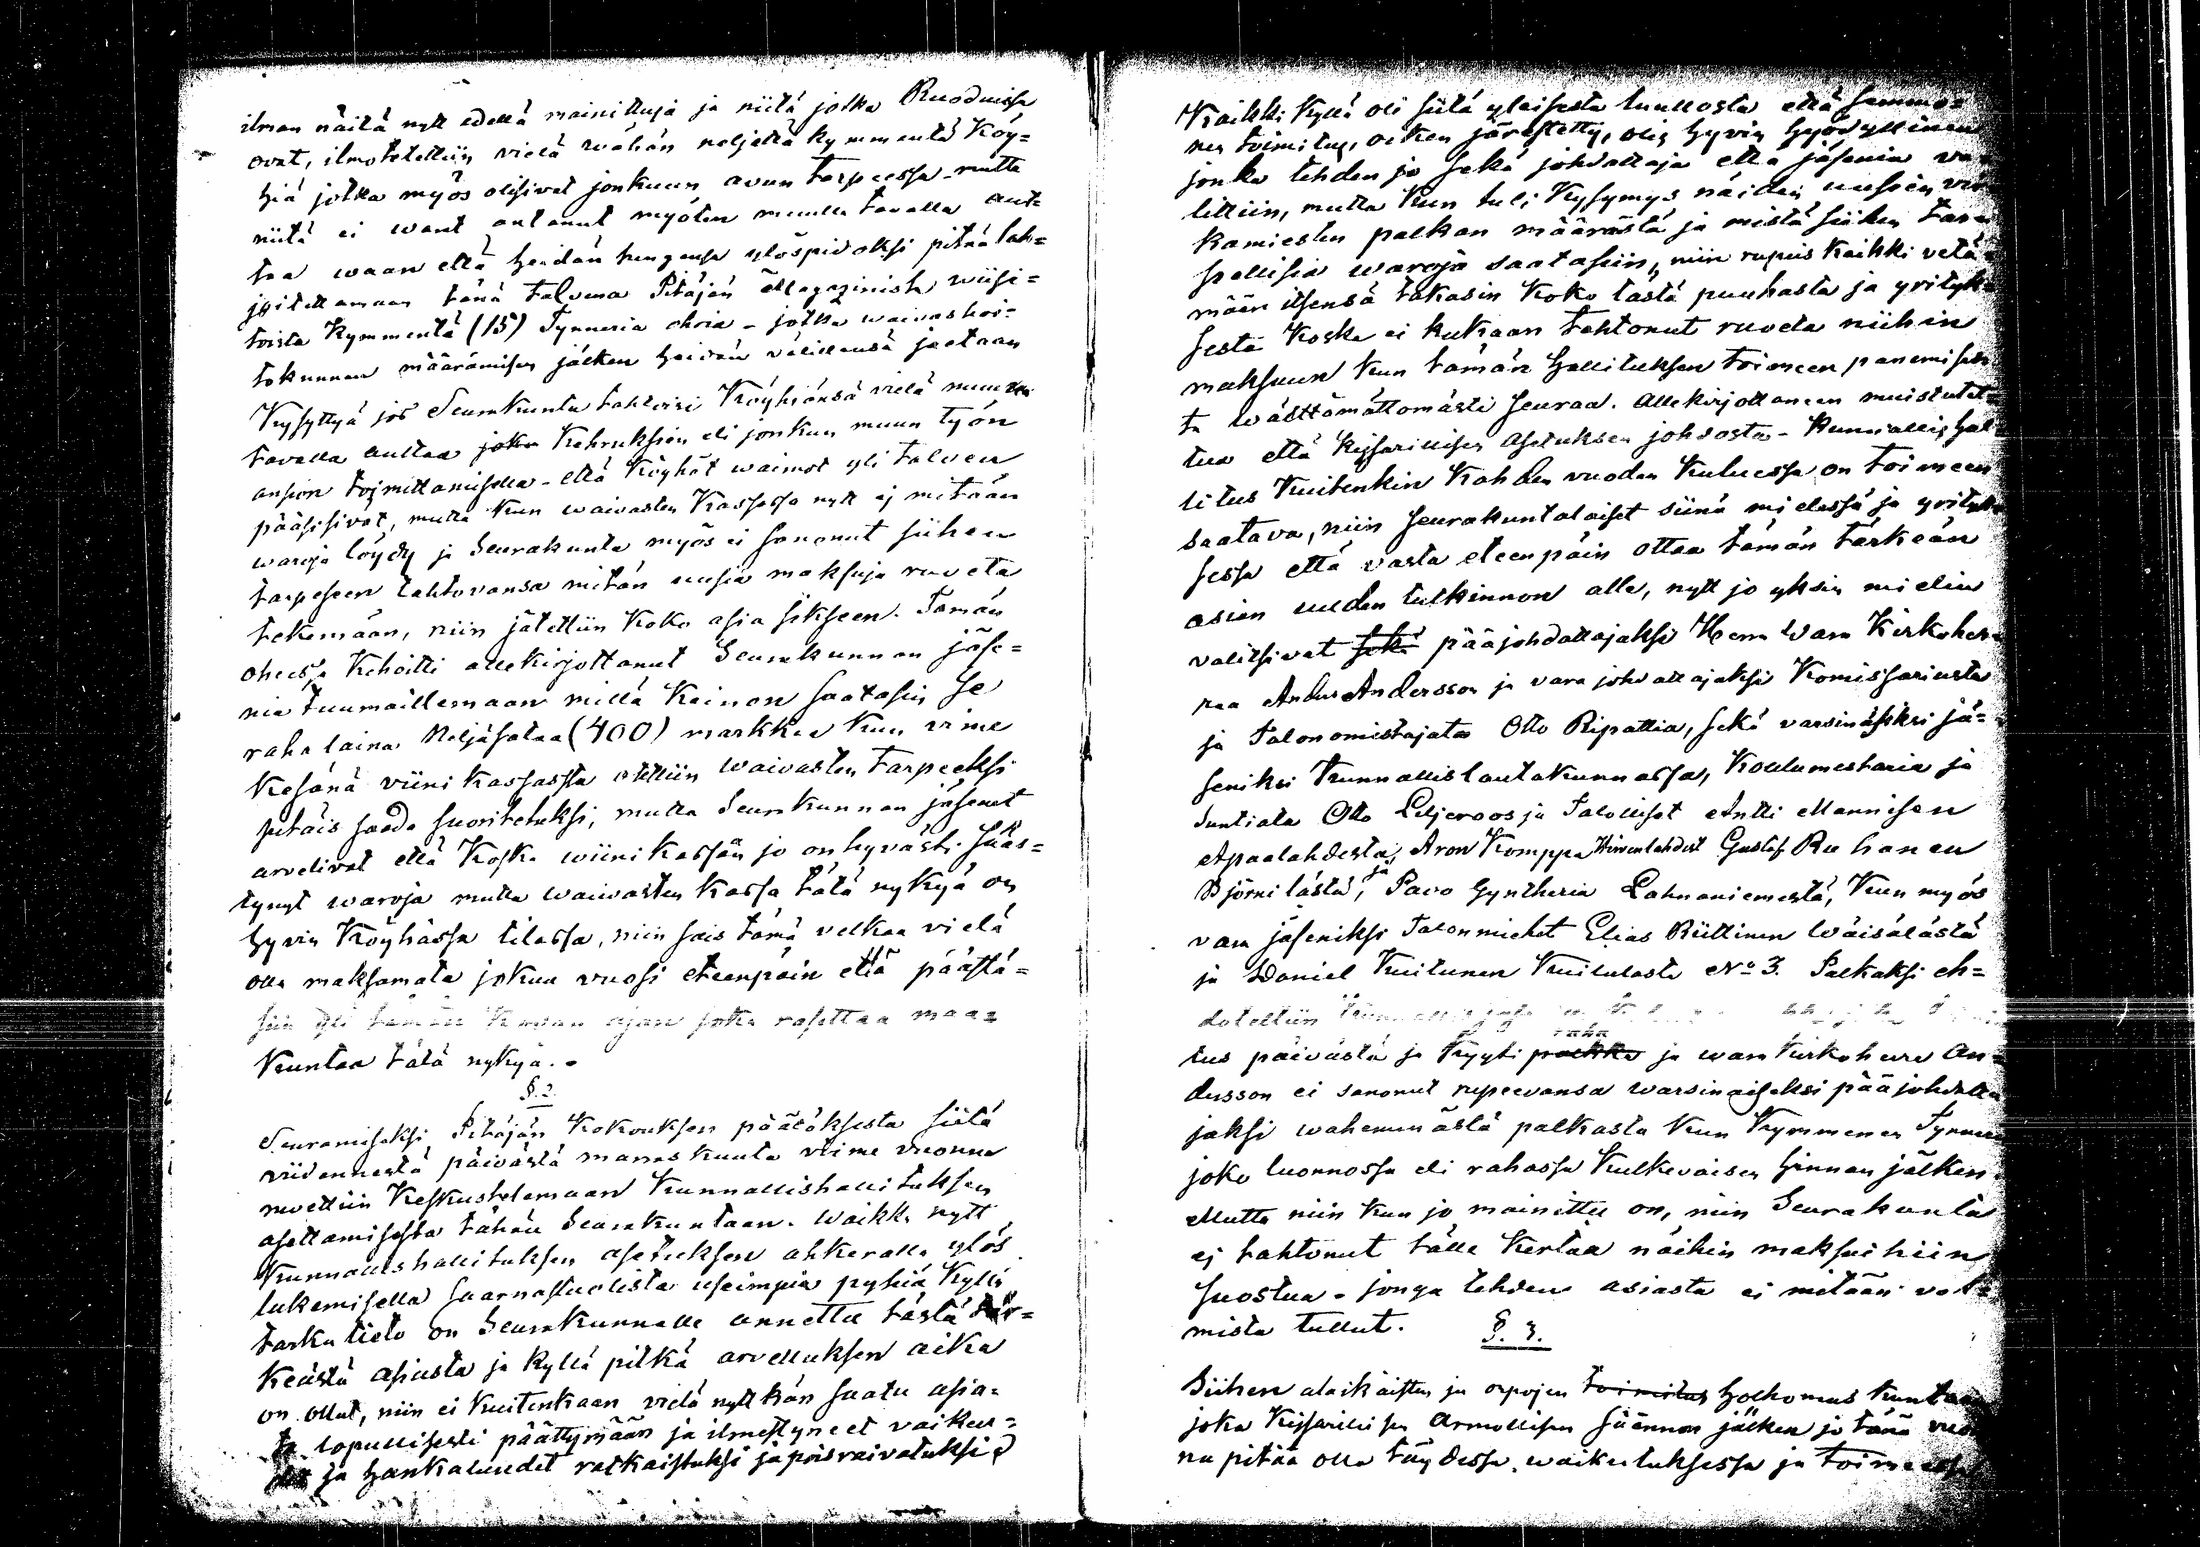 ilman näitä nytt edellä mainittuja ja niitä jotka Ruoduissa
ovat, ilmotetettiin vielä wähän neljättä kymmentä Köy=
hiä jotka myös olisivat jonkuun avun tarpeessa - mutta
niitä ei want antanut myöten muulla tavalla aut=
taa waan että heidän hengensä ylöspidoksi pitää lah=
joitettaman tänä talvena Pitäjän Magaziinista wiisi=
toista kymmentä (15) Tynneriä ohria - jotka waivashoi=
tokunnan määrämisen jälken heidän välillensä jaetaan
Kysyttyä jos Seurakunta tahtoisi Köyhiänsä vielä muulla
tavalla auttaa joko Kehruksien eli jonkun muun työn
ansion toimittamisella - että Köyhät waimot yli talven
pääsisivät, mutta kun waivasten Kassassa nytt ej mitään
waroja löydy ja Seurakunta myös ei sanonut siihen
tarpeseen tahtovansa mitän uusia maksuja ruveta
tekemään, niin jätettiin Koko asia sikseen. Tämän
ohessa Kehoitti allekirjottanut Seurakunnan jäse=
niä tuumaillemaan millä Keinon saatasiin se
raha laina Neljäsataa (400) markkaa kun viime
Kesänä viini Kassasta otettiin Waivasten tarpeeksi
pitäis saada suoritetuksi, mutta Seurakunnan jäsenet
arvelivat että Koska wiini Kassan jo on hyvästi sääs=
tynyt waroja mutta waivasten Kassa tätä nykyä on
hyvin Köyhässä tilassa, niin sais tämä velkaa vielä
olla maksamata jokuu vuosi eteenpäin että päästä=
siin yli tämän kovan ajan joka rasittaa maa=
Kuntaa tätä nykyä. -
§. 2.
Seuramiseksi Pitäjän Kokouksen päätöksestä siitä
viidennestä päivästä marraskuuta viime vuonna
ruvettiin Keskustelemaan Kunnallishallituksen
asettamisesta tähän Seurakuntaan. Waikka nytt
Kunnallishallituksen asetuksen ahkeralla ylös
lukemisella saarnastuolista useimpia pyhiä Kyllä
tarka tieto on Seurakunnalle annettu tästä tär=
Keästä asiasta ja Kyllä pitkä arvelluksen aika
on ollut, niin ei Kuitenkaan vielä nytt kän saatu asia=
ta lopullisesti päättymään ja ilmestyneet vaikeu=
det ja hankaluudet ratkaistuksi ja pois raivatuksi?
Kaikki Kyllä oli siitä yleisestä luullosta että semmo=
nen toimitus, oiken järestetty, olis hyvin hyödyllinen
jonka tehden jo sekä johdattaja että jäseniä va=
littiin, mutta kun tuli Kysymys näiden uusien vir=
kamiesten palkan määrästä ja mistä siihen tar=
pellisia waroja saatasiin, niin rupeis Kaikki vetä=
mään itsensä takasin Koko tästä puuhasta ja yrityk=
sestä Koska ei kukaan tahtonut ruveta niihin
maksuun kun tämän hallituksen toimeen panemisesta
ta wälttämättömästi seuraa. Allekirjottaneen muistutet=
tua että Keisarillisen Asetuksen johdosta - Kunnallis hal=
litus Kuitenkin Kahden vuoden Kuluessa on toimeen
saatava, niin seurakuntalaiset siinä mielessä ja yrityk=
sessä että vasta eteenpäin ottaa tämän tärkeän
asian uuden tutkinnon alle, nytt jo yksin mielin
valitsivat sekä pääjohdattajaksi Herra Wara Kirkoher=
raa Anders Andersson ja vara johdattajaksi Komissariusta
ja Talonomistajata Otto Ripattia, sekä varsinaisiksi jä=
seniksi Kunnallislautakunnassa, Koulumestaria ja
Suntiata Otto Liljeroos ja Talolliset Antti Mannisen
Apaalahdesta, Aron Komppa Hirvenlahdest Gustaf Ruhanen
Björnilästä, ja Pavo Gyntheria Lahnaniemestä, Kun myös
vara jäseniksi Talonmiehet Elias Riittinen Wäisälästä
ja Daniel Kuitunen Kuitulasta No 3. Palkaksi eh=
dotettiin
tus päivästä ja Kyyti palkka raha ja wara Kirkoherra An=
dersson ei sanonut rupeevansa warsinaiseksi pääjohdatta
jaksi wähemmästä palkasta kun Kymmenen Tynneriä
joko luonnossa eli rahassa Kulkevaisen hinnan jälken.
Mutta niin kun jo mainittu on, niin Seurakunta
ej tahtonut tälle Kertaa näihin maksuihiin
suostua - jonga tehden asiasta ei mitään val=
mista tullut.
§. 3.
Siihen alaikäisten ja orpojen toimitus holhomus kuntaan
joka Keisarillisen Armollisen säännön jälken jo tänä vuon
na pitää olla täydessä waikutuksessa ja toimessa